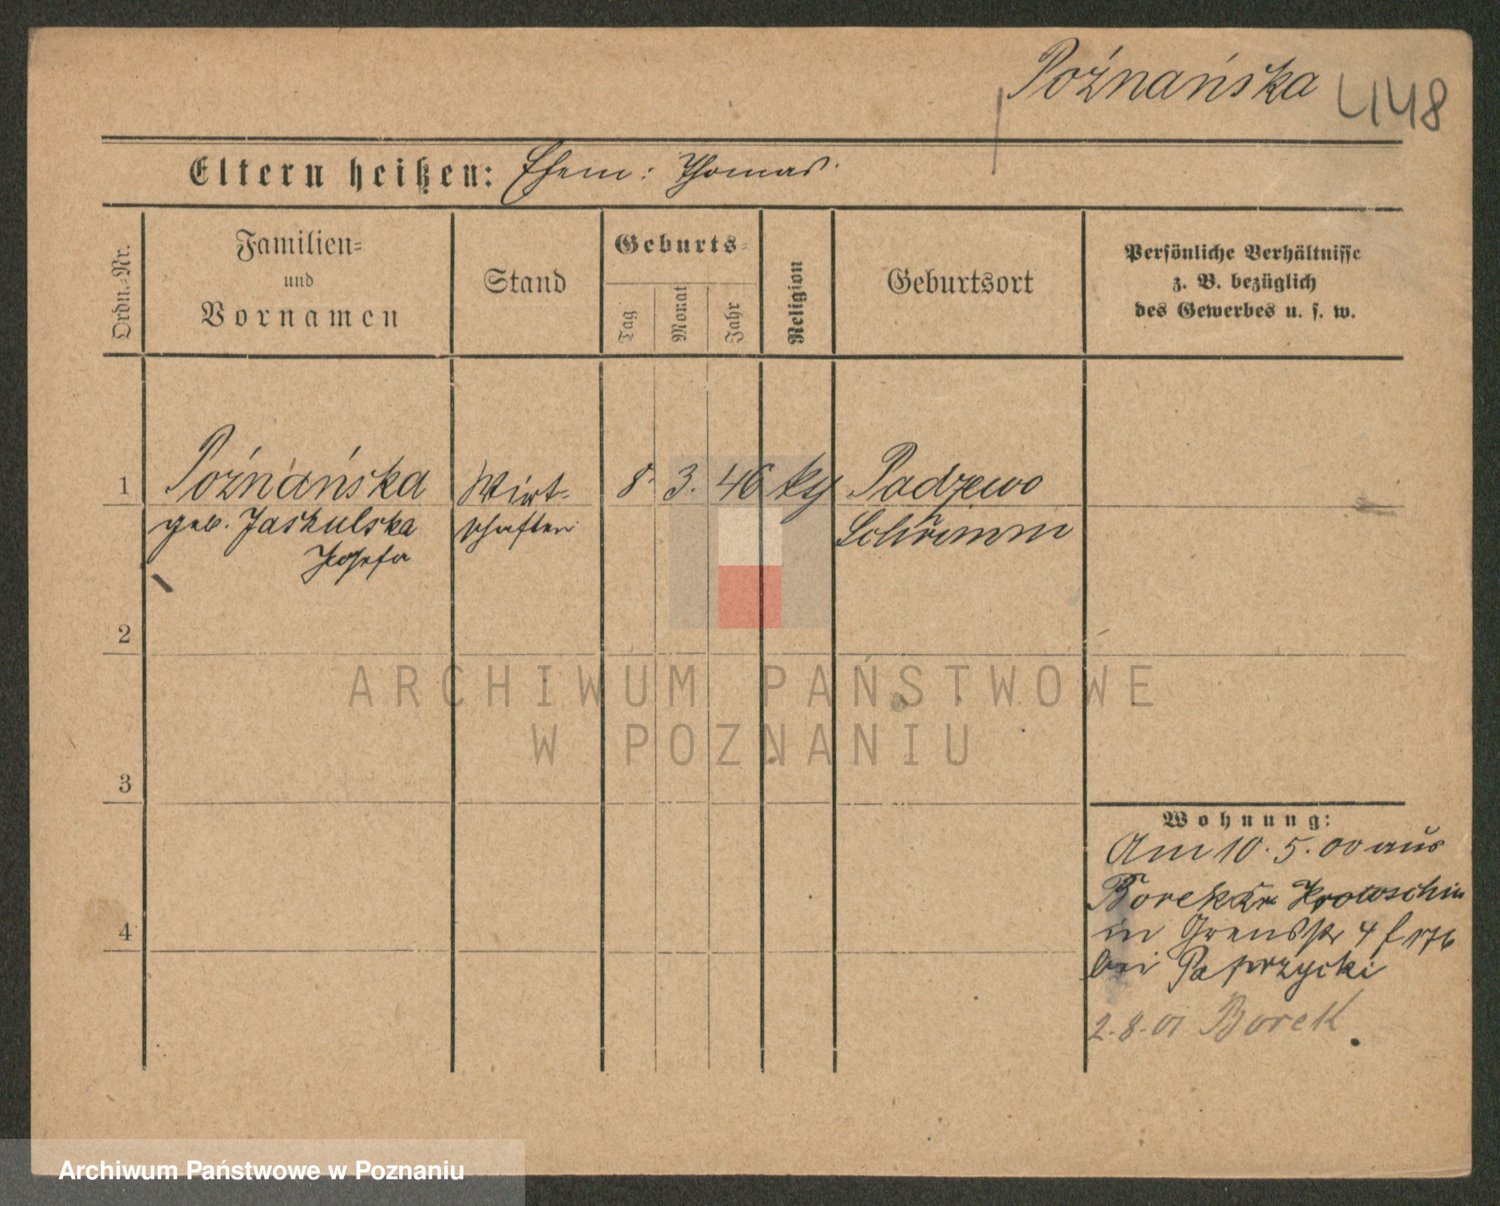 Poźnańska 4148
Eltern heißen: Ehem: Thomas.
Ordn.=Nr.
Familien=
und
Vornamen
Stand
Geburts=
Tag
Monat
Jahr
Religion
Geburtsort
Persönliche Verhältnisse
z. B. bezüglich
des Gewerbes u. s. w.
1 Poźnańska Wirt- 8. 3. 46 Padzewo
geb. Jaskulska schafterin Schrimm
Josefa
2
3
4
Wohnung:
Am 10. 5. 00 aus
Borek Kr Krotoschin
in 4
bei
2.8.01 Borek
ARCHIWUM PAŃSTWOWE
W POZNANIU
Archiwum Państwowe w Poznaniu